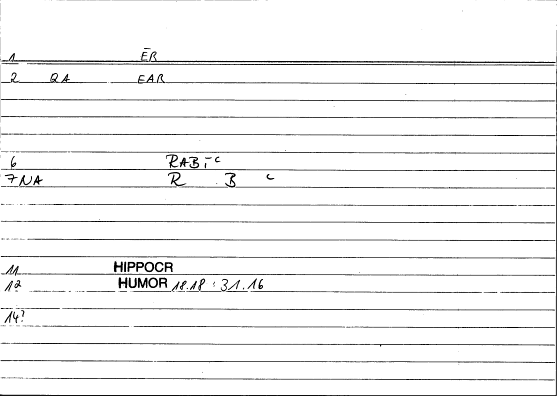 1 ĒR
2 QA EAR
6 RABĪC
7 NA R B C
11 HIPPOCR
12 HUMOR 18.18 : 31.16
14?